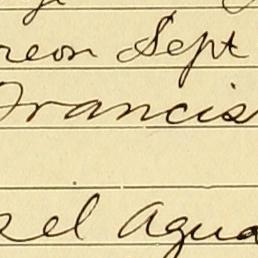 reon Sept
Francis
el Agua